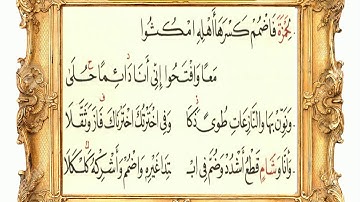 لِحَمْزَةَ فَاضْمُمْ كَسْرَ هَا أَهْلِهِ امْكُثُوا
مَعًا وَافْتَحُوا إِنِّي أَنَا دَائِمًا حُلَى
وَنَوِّنْ بِهَا وَالنَّازِعَاتِ طُوًى ذَكَا وَفِي اخْتَرْتُكَ اخْتَرْنَاكَ فَازَ وَثَقَّلَا
وَأَنَّا وَشَامٍ قَطْعُ أَشْدُدْ وَضُمَّ فِي ابْـ ـتِدَا غَيْرِهِ وَاضْمُمْ وَأَشْرِكْهُ كَلْكَلَا